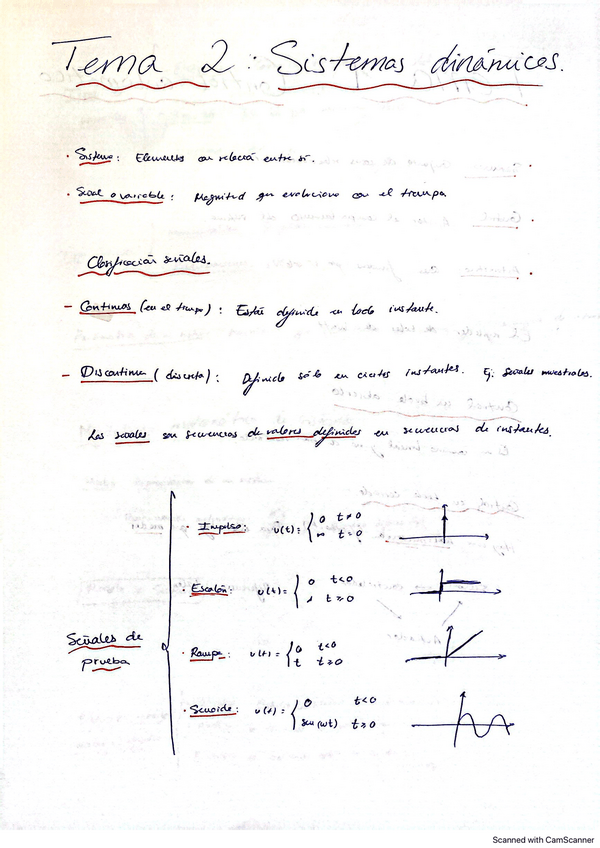 Tema 2: Sistemas dinámicos.
· Sistema: Elementos con relación entre sí.
· Señal o variable: Magnitud que evoluciona con el tiempo
Clasificación señales.
- Continuas (en el tiempo): Están definida en todo instante.
- Discontinua (discreta): Definida sólo en ciertos instantes. Ej: señales muestrales.
Las señales son secuencias de valores definidos en secuencias de instantes.
Señales de prueba
· Impulso: u(t) = { 0 t≠0
∞ t=0
· Escalón: u(t) = { 0 t<0
1 t≥0
· Rampa: u(t) = { 0 t<0
t t≥0
· Senoide: u(t) = { 0 t<0
sen(wt) t≥0
Scanned with CamScanner